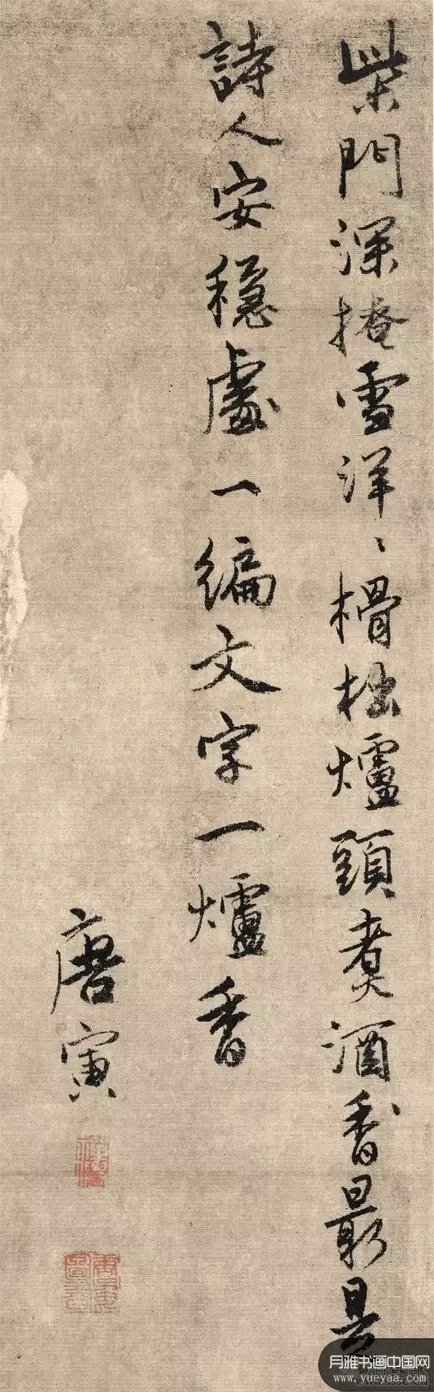 柴門深掩雪洋〻榾柮爐頭煮酒香最是
詩人安穩處一編文字一爐香
唐寅
月雅书画中国网
www.yueyaa.com